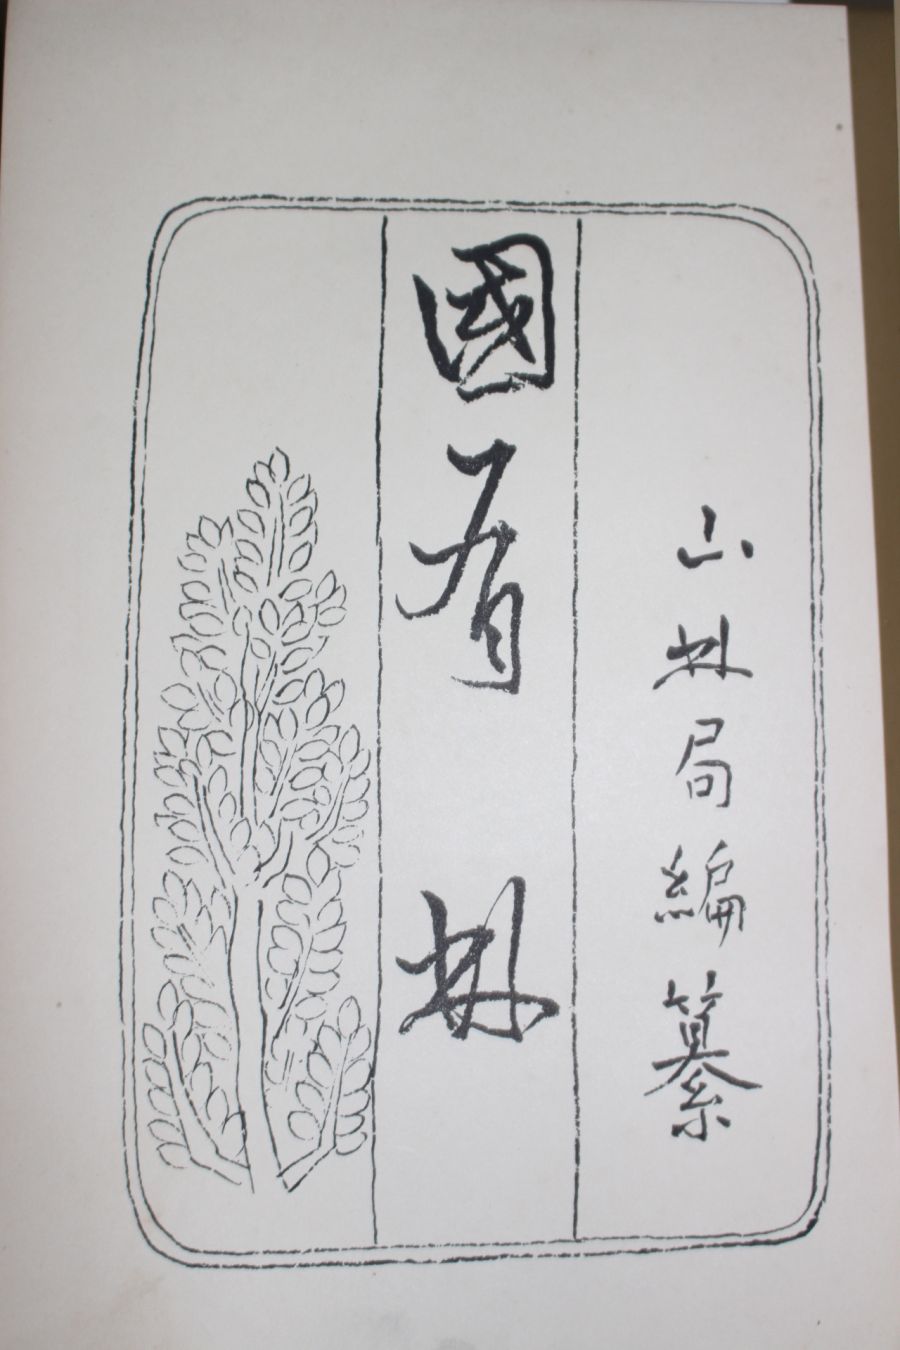 山林局編纂
國有林